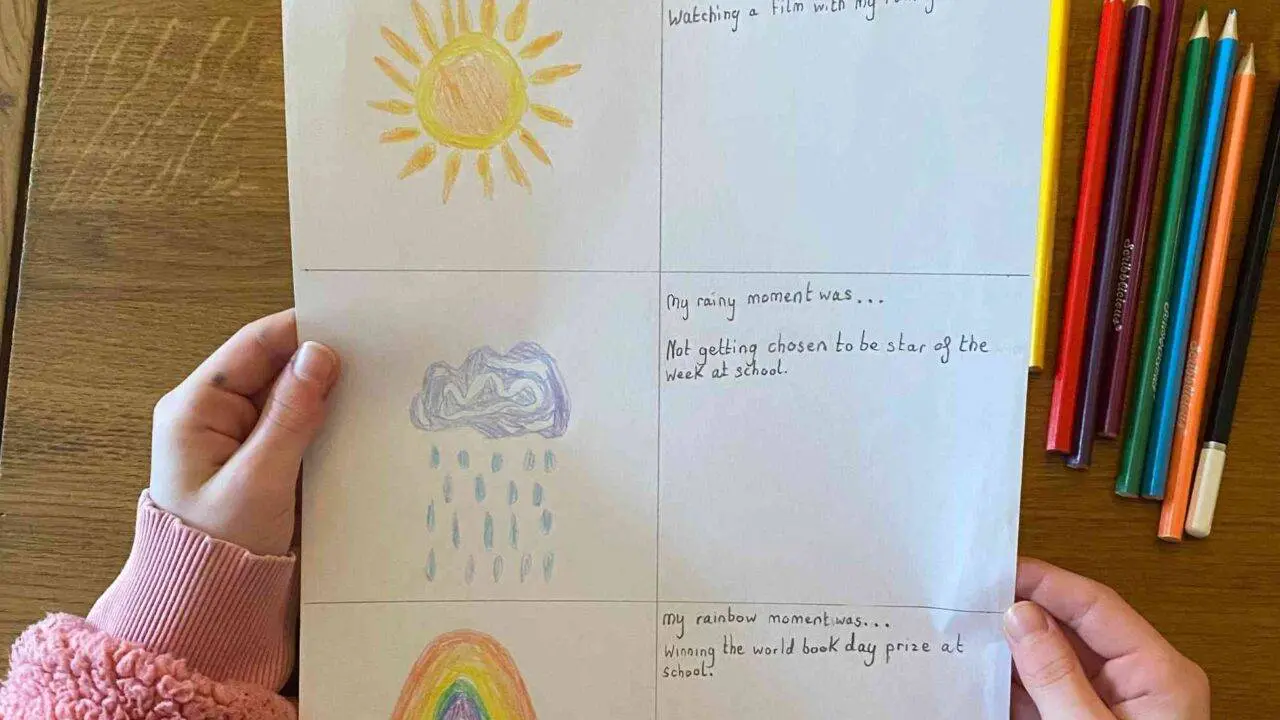 Watching a film with my
My rainy moment was...
Not getting chosen to be star of the
week at school.
My rainbow moment was...
Winning the world book day prize at
school.
Scribblicious